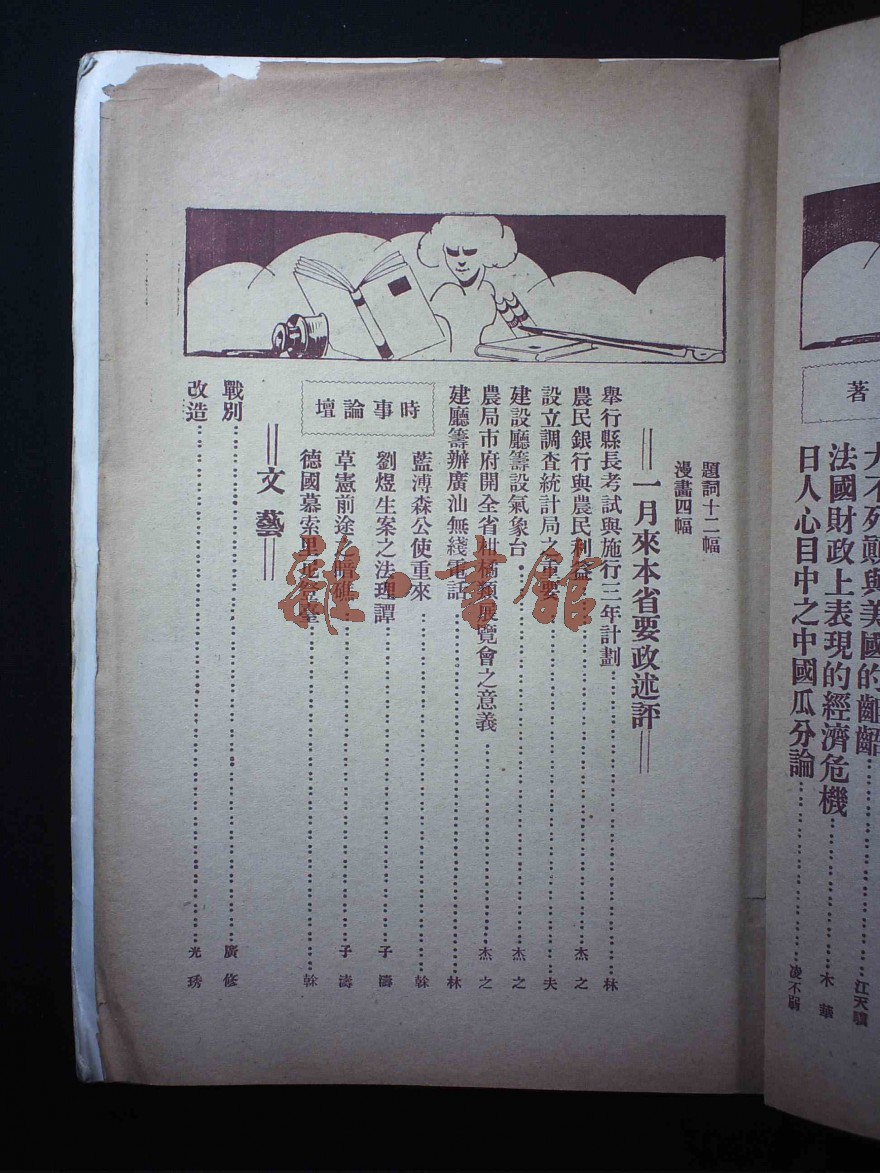 著
大不死顛與美國的齟齬 江天驥
法國財政上表現的經濟危機 木華
日人心目中之中國瓜分論 凌不弱
題詞十二幅
漫畫四幅
一月來本省要政述評
舉行縣長考試與施行三年計劃 林
農民銀行與農民利益 杰之
設立調查統計局之重要 夫
建設廳籌設氣象台 杰之
農局市府開全省柑橘類展覽會之意義 杰之
建廳籌辦廣汕無綫電話 林
時事論壇
藍溥森公使重來 榦
劉煜生案之法理譚 子濤
草憲前途之暗礁 子濤
德國慕索里尼登臺 榦
文藝
戰別 廣修
改造 光琇
雜·書館